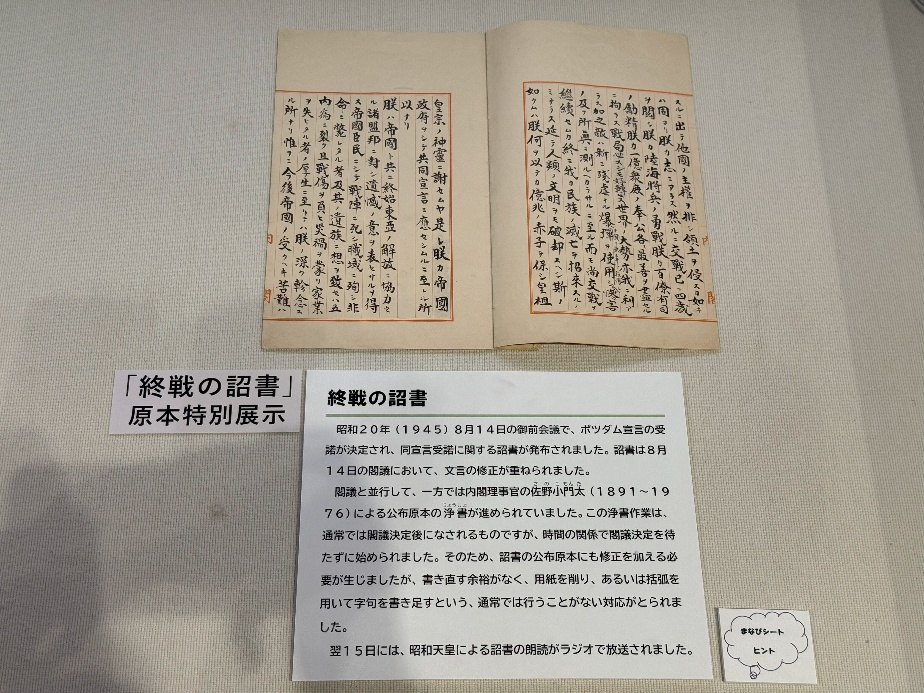 スルニ出テ他國ノ主權ヲ排シ領土ヲ侵スカ如キ
ハ固ヨリ朕カ志ニアラス然ルニ交戰已ニ四歲
ヲ閱シ朕カ陸海將兵ノ勇戰朕カ百僚有司
ノ勵精朕カ一億衆庶ノ奉公各最善ヲ盡セル
ニ拘ラス戰局必スシモ好轉セス世界ノ大勢亦我ニ利ア
ラス加之敵ハ新ニ殘虐ナル爆彈ヲ使用シ慘害
ノ及フ所眞ニ測ルヘカラサルニ至ル而モ尚交戰ヲ
繼續セムカ終ニ我カ民族ノ滅亡ヲ招來スルノ
ミナラス延テ人類ノ文明ヲモ破却スヘシ斯ノ
如クムハ朕何ヲ以テカ億兆ノ赤子ヲ保シ皇祖
皇宗ノ神靈ニ謝セムヤ是レ朕カ帝國
政府ヲシテ共同宣言ニ應セシムルニ至レル所
以ナリ
朕ハ帝國ト共ニ終始東亞ノ解放ニ協力セ
ル諸盟邦ニ對シ遺憾ノ意ヲ表セサルヲ得
ス帝國臣民ニシテ戰陣ニ死シ職域ニ殉シ非
命ニ斃レタル者及其ノ遺族ニ想ヲ致セハ五
內爲ニ裂ク且戰傷ヲ負ヒ災禍ヲ蒙リ家業
ヲ失ヒタル者ノ厚生ニ至リテハ朕ノ深ク軫念ス
ル所ナリ惟フニ今後帝國ノ受クヘキ苦難ハ
「終戦の詔書」
原本特別展示
終戦の詔書
昭和20年(1945)8月14日の御前会議で、ポツダム宣言の受
諾が決定され、同宣言受諾に関する詔書が発布されました。詔書は8月
14日の閣議において、文言の修正が重ねられました。
閣議と並行して、一方では内閣理事官の佐野小門太(1891~19
76)による公布原本の浄書が進められていました。この浄書作業は、
通常では閣議決定後になされるものですが、時間の関係で閣議決定を待
たずに始められました。そのため、詔書の公布原本にも修正を加える必
要が生じましたが、書き直す余裕がなく、用紙を削り、あるいは括弧を
用いて字句を書き足すという、通常では行うことがない対応がとられま
した。
翌15日には、昭和天皇による詔書の朗読がラジオで放送されました。
まなびシート
ヒント